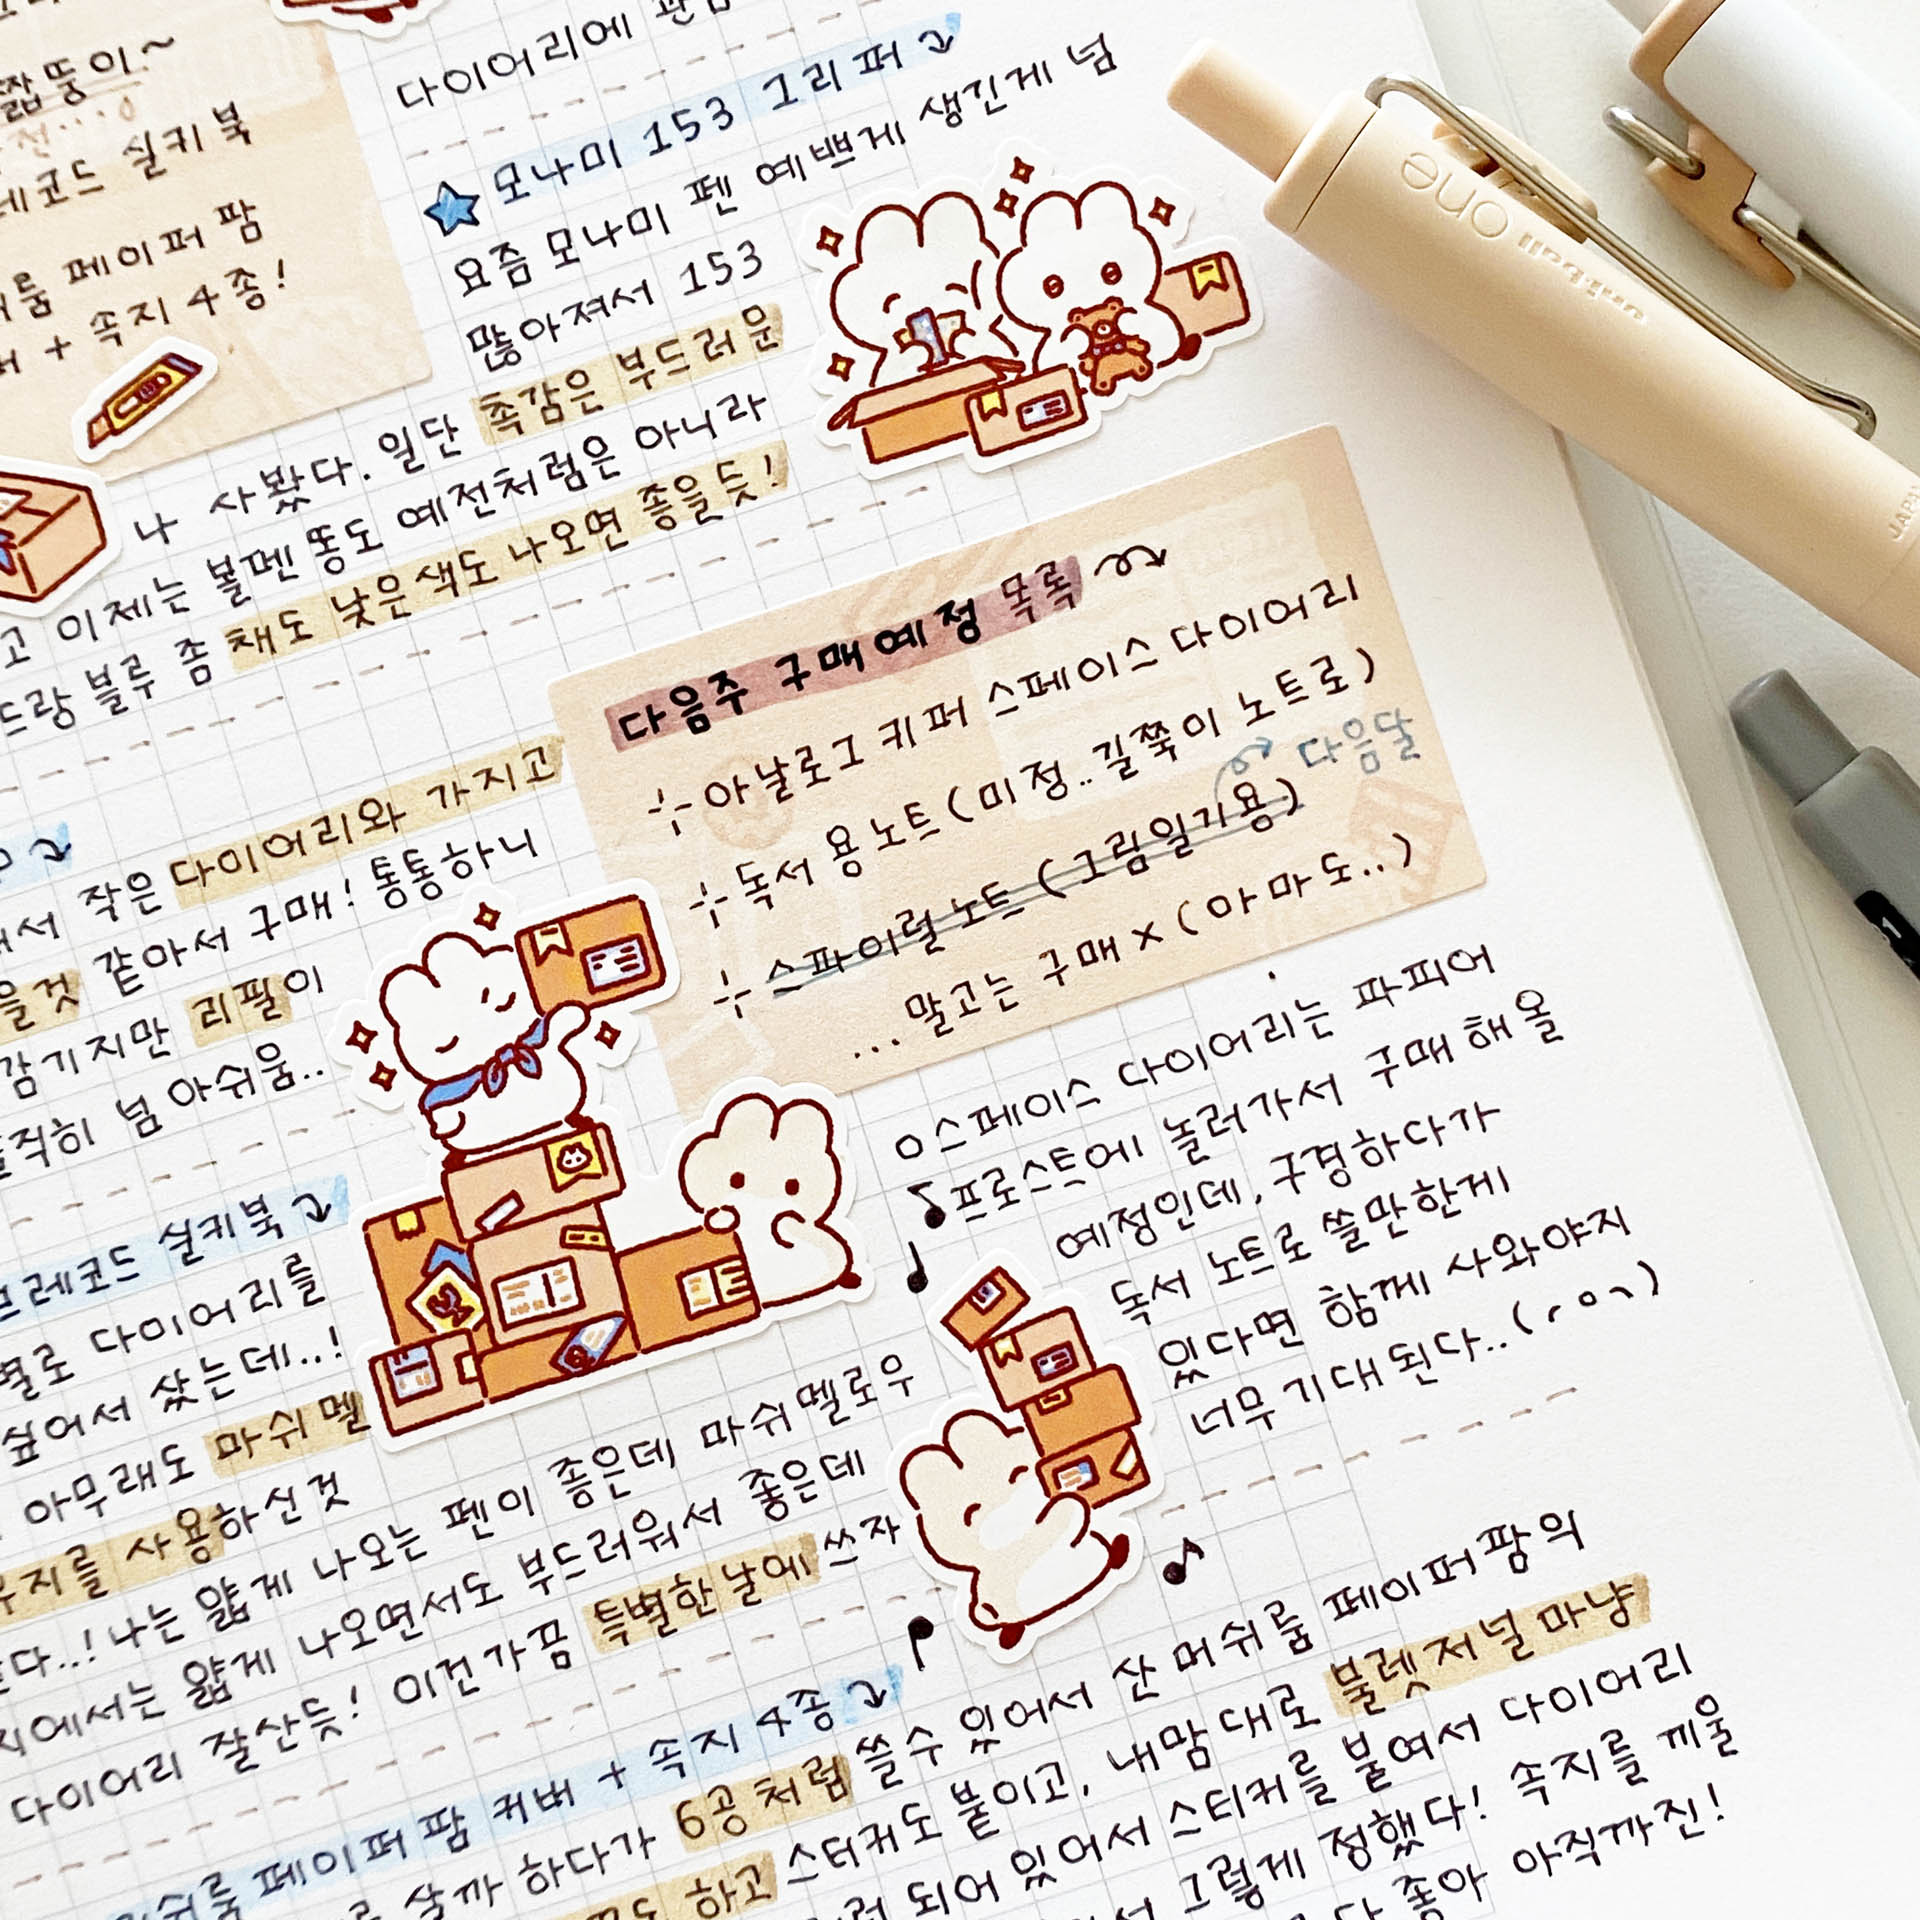 짧뚱이~
레코드 실키북
룸 페이퍼 팜
+ 속지 4종!
다이어리에
모나미 153 그리퍼
요즘 모나미 펜 예쁘게 생긴게 넘
많아져서 153
나 사봤다. 일단 촉감은 부드러운
고 이제는 볼펜 똥도 예전처럼은 아니라
드랑 블루 좀 채도 낮은 색도 나오면 좋을듯!
다음주 구매예정 목록
아날로그 키퍼 스페이스 다이어리
독서용 노트(미정..길쭉이 노트로)
스파이럴 노트(그림일기용)
다음달
... 말고는 구매 x (아마도..)
작은 다이어리와 가지고
같아서 구매! 통통하니
감기지만 리필이
솔직히 넘 아쉬움..
레코드 실키북
별로 다이어리를
싶어서 샀는데..!
아무래도 마쉬멜
지를 사용하신것
다..! 나는 얇게 나오는 펜이 좋은데 마쉬멜로우
에서는 얇게 나오면서도 부드러워서 좋은데
다이어리 잘산듯! 이건 가끔 특별한날에 쓰자
스페이스 다이어리는 파피어
프로스트에 놀러가서 구매해올
예정인데, 구경하다가
독서 노트로 쓸만한게
있다면 함께 사와야지
너무 기대된다..
쉬룸 페이퍼팜 커버 + 속지 4종
살까 하다가 6공처럼 쓸수 있어서 산 머쉬룸 페이퍼팜의
하고 스티커도 붙이고, 내맘대로 불렛저널 마냥
되어 있어서 스티커를 붙여서 다이어리
그렇게 정했다! 속지를 끼울
좋아 아직까진!
uniball one
JAPAN